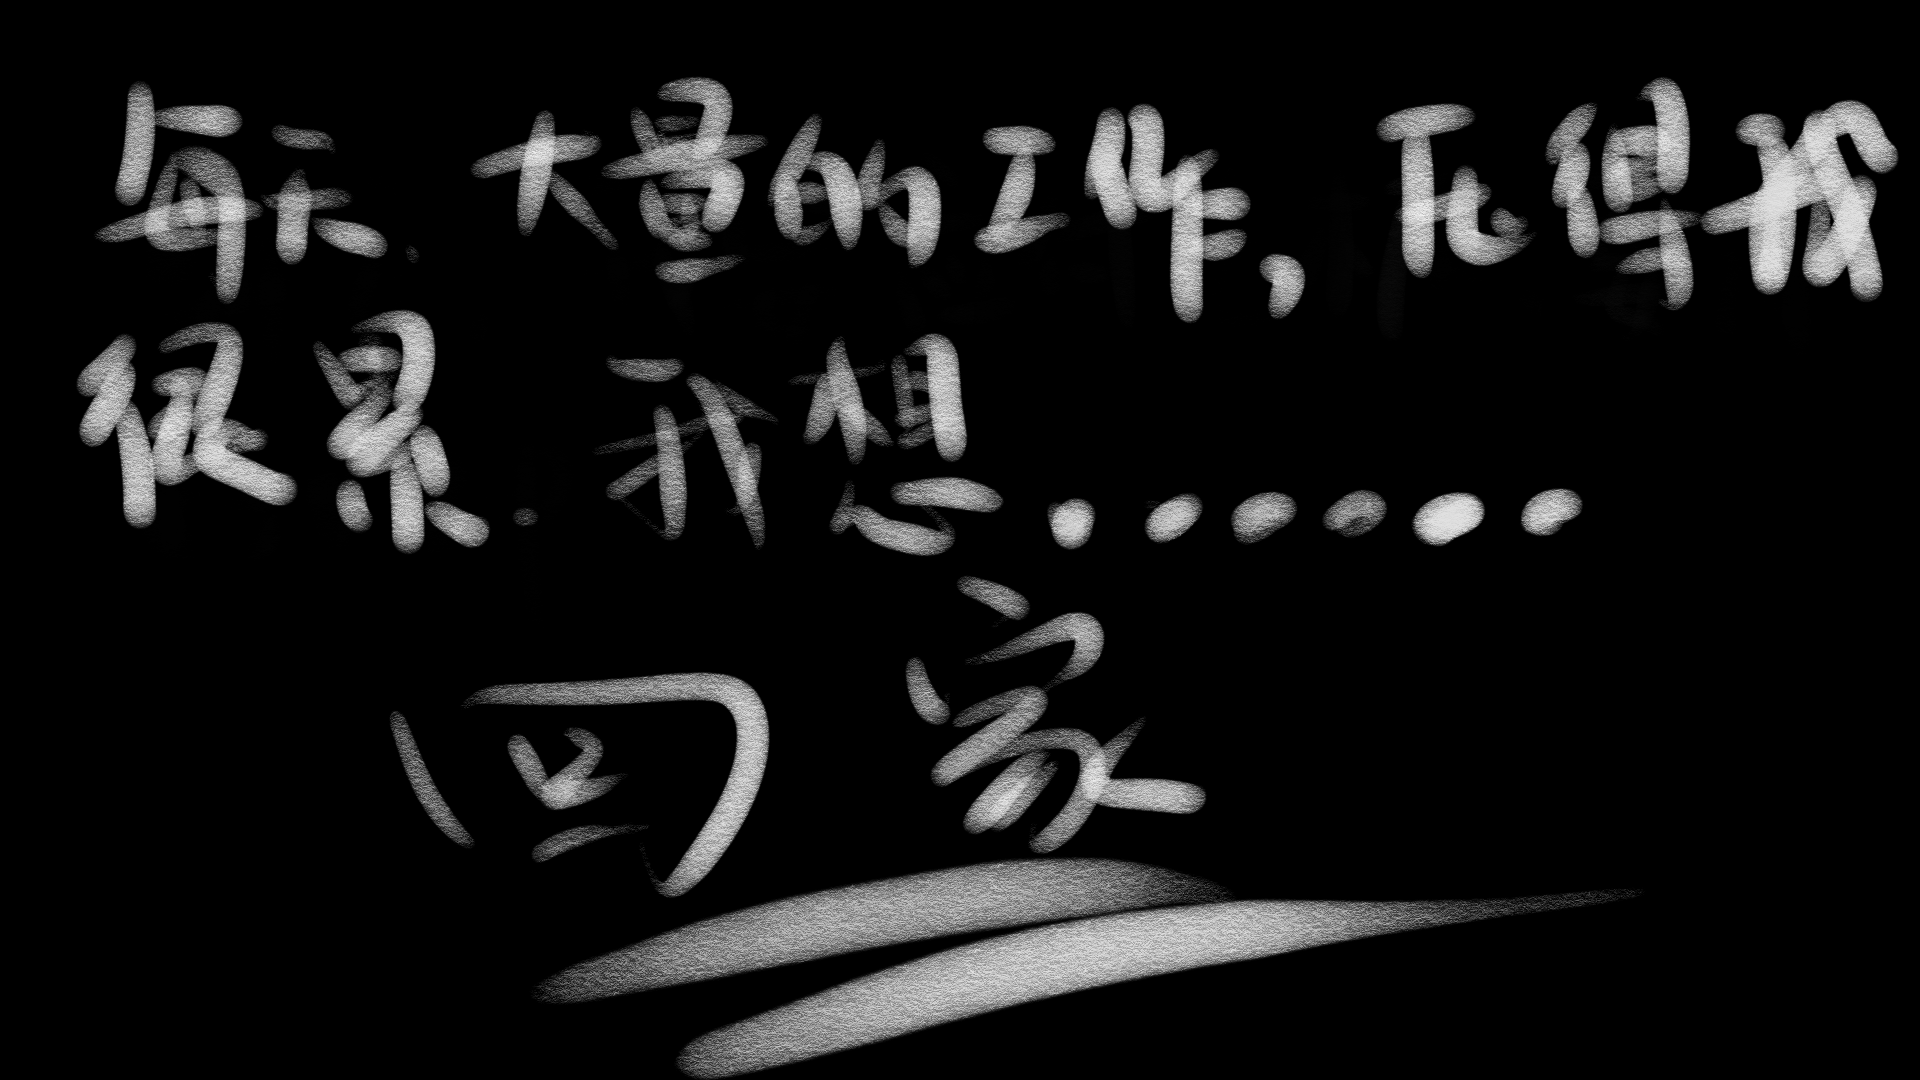 每天.大量的工作,压得我
很累.我想......
回家